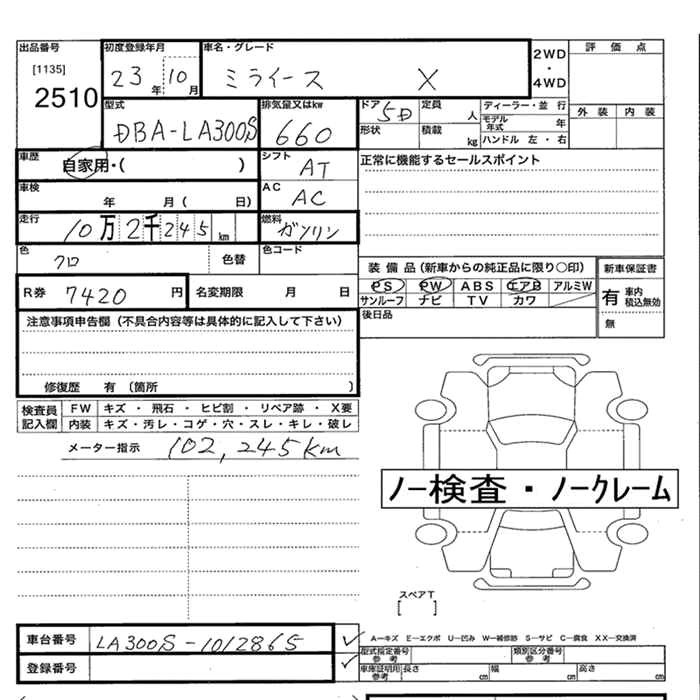 出品番号
[1135]
2510
初度登録年月
23年 10月
車名・グレード
ミライース X
2WD
・
4WD
評価点
外装 内装
型式
DBA-LA300S
排気量又はkw
660
ドア 5D
定員 人
形状
積載 kg
ディーラー・並行
モデル年式 年
ハンドル 左・右
車歴
自家用・( )
シフト
AT
正常に機能するセールスポイント
車検
年 月( 日)
AC
AC
走行
10万2千245km
燃料
ガソリン
色
クロ
色替
色コード
R券 7420 円
名変期限 月 日
装備品(新車からの純正品に限り○印)
PS PW ABS エアB アルミW
サンルーフ ナビ TV カワ
新車保証書
有 車内 税込無効
無
後日品
注意事項申告欄(不具合内容等は具体的に記入して下さい)
修復歴 有(箇所 )
検査員記入欄
FW キズ・飛石・ヒビ割・リペア跡・X要
内装 キズ・汚レ・コゲ・穴・スレ・キレ・破レ
メーター指示 102,245km
ノー検査・ノークレーム
スペアT
[ ]
車台番号 LA300S-1012865
登録番号
A―キズ E―エクボ U―凹み W―補修跡 S―サビ C―腐食 XX―交換済
型式指定番号
参考
類別区分番号
参考
車庫証明用
参考
長さ cm
幅 cm
高さ cm